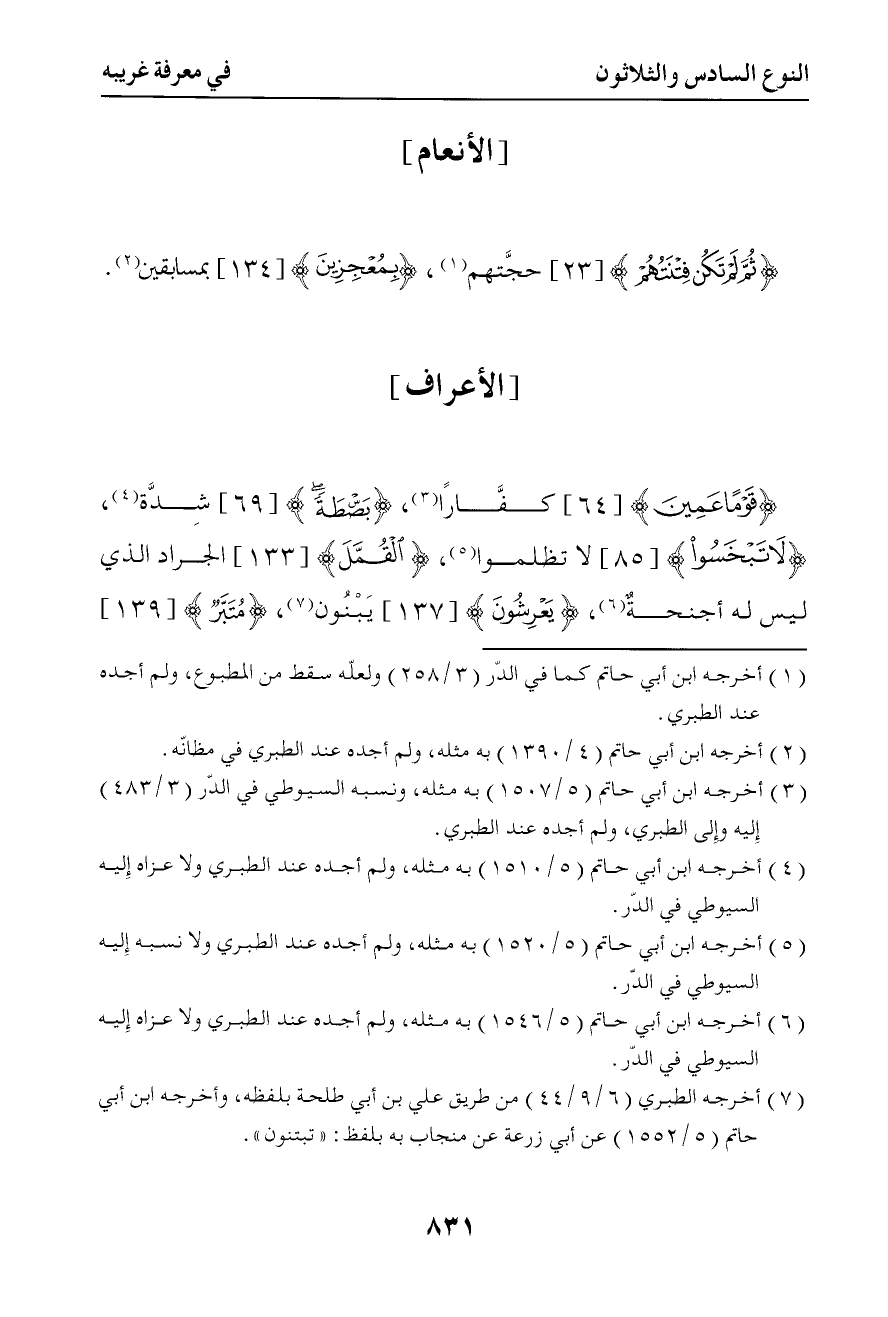 النوع السادس والثلاثون في معرفة غريبه
[ الأنعام ]
﴿ ثُمَّ لَمْ تَكُن فِتْنَتُهُمْ ﴾ [ ٢٣ ] حجَّتهم(١) ، ﴿بِمُعْجِزِينَ ﴾ [ ١٣٤ ] بمسابقين(٢) .
[ الأعراف ]
﴿قَوْمًا عَمِينَ ﴾ [ ٦٤ ] كــفَّــارًا(٣)، ﴿بَصْۜطَةً ۖ﴾ [ ٦٩ ] شِــدَّة(٤)،
﴿لَا تَبْخَسُوا۟ ﴾ [ ٨٥ ] لا تظلمــوا(٥)، ﴿ ٱلْقُمَّلَ﴾ [ ١٣٣ ] الجراد الذي
ليس له أجنحــةٌ(٦)، ﴿ يَعْرِشُونَ ﴾ [ ١٣٧ ] يَبْنُون(٧)، ﴿مُتَبَّرٌ ﴾ [ ١٣٩ ]
( ١ ) أخرجه ابن أبي حاتم كما في الدّر ( ٣/ ٢٥٨ ) ولعلّه سقط من المطبوع، ولم أجده
عند الطبري .
( ٢ ) أخرجه ابن أبي حاتم ( ٤/ ١٣٩٠ ) به مثله، ولم أجده عند الطبري في مظانّه .
( ٣ ) أخرجه ابن أبي حاتم ( ٥/ ١٥٠٧ ) به مثله، ونسبه السيوطي في الدّر ( ٣/ ٤٨٣ )
إليه وإلى الطبري، ولم أجده عند الطبري .
( ٤ ) أخرجه ابن أبي حاتم ( ٥/ ١٥١٠ ) به مثله، ولم أجده عند الطبري ولا عزاه إليه
السيوطي في الدّر .
( ٥ ) أخرجه ابن أبي حاتم ( ٥/ ١٥٢٠ ) به مثله، ولم أجده عند الطبري ولا نسبه إليه
السيوطي في الدّر .
( ٦ ) أخرجه ابن أبي حاتم ( ٥/ ١٥٤٦ ) به مثله، ولم أجده عند الطبري ولا عزاه إليه
السيوطي في الدّر .
( ٧ ) أخرجه الطبري ( ٦/ ٩/ ٤٤ ) من طريق علي بن أبي طلحة بلفظه، وأخرجه ابن أبي
حاتم ( ٥/ ١٥٥٢ ) عن أبي زرعة عن منجاب به بلفظ : « تبتنون» .
٨٣١